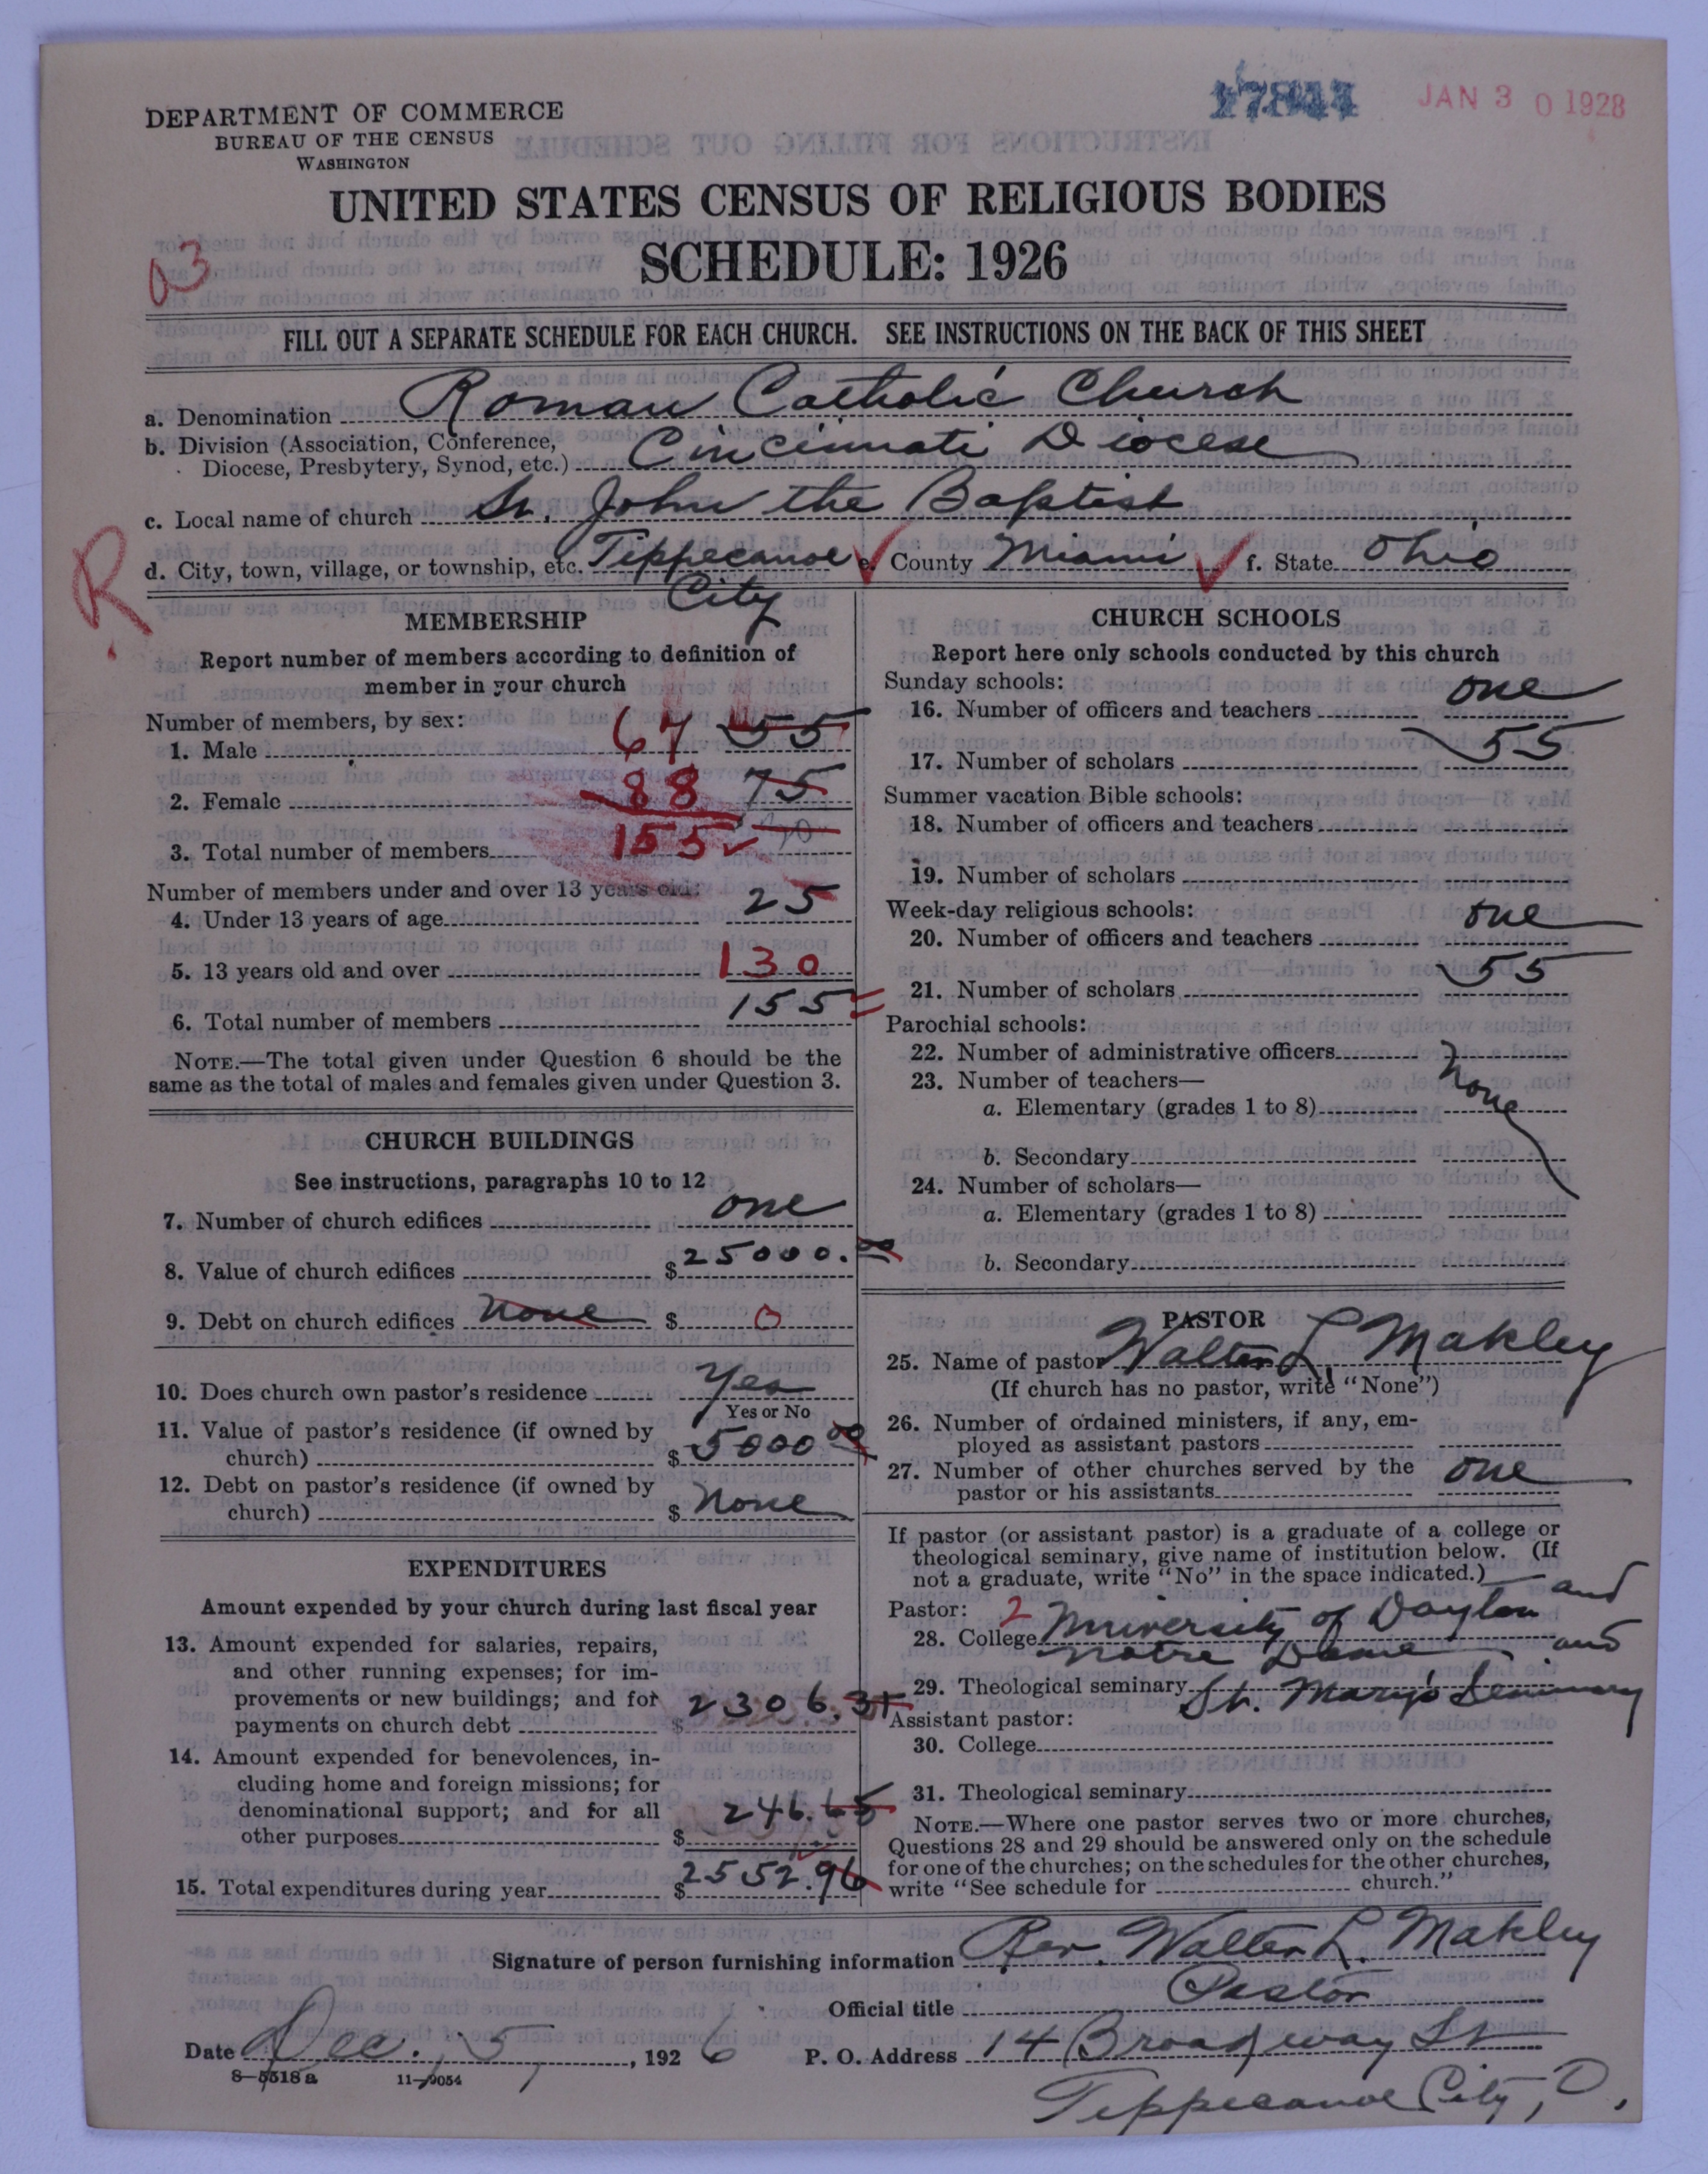 17844 JAN 30 1928
DEPARTMENT OF COMMERCE
BUREAU OF THE CENSUS
WASHINGTON
UNITED STATES CENSUS OF RELIGIOUS BODIES
SCHEDULE: 1926
03
FILL OUT A SEPARATE SCHEDULE FOR EACH CHURCH. SEE INSTRUCTIONS ON THE BACK OF THIS SHEET
a. Denomination Roman Catholic Church
b. Division (Association, Conference,
Diocese, Presbytery, Synod, etc.) Cincinnati Diocese
c. Local name of church St. John the Baptist
R
d. City, town, village, or township, etc. Tippecanoe City e. County Miami f. State Ohio
MEMBERSHIP
Report number of members according to definition of
member in your church
Number of members, by sex:
1. Male 67 55
2. Female 88 75
3. Total number of members 155
Number of members under and over 13 years old:
4. Under 13 years of age 25
5. 13 years old and over 130
6. Total number of members 155
NOTE.—The total given under Question 6 should be the
same as the total of males and females given under Question 3.
CHURCH BUILDINGS
See instructions, paragraphs 10 to 12
7. Number of church edifices one
8. Value of church edifices $25000.00
9. Debt on church edifices none $ 0
10. Does church own pastor's residence Yes
Yes or No
11. Value of pastor's residence (if owned by
church) $5000 00
12. Debt on pastor's residence (if owned by
church) $ none
EXPENDITURES
Amount expended by your church during last fiscal year
13. Amount expended for salaries, repairs,
and other running expenses; for im-
provements or new buildings; and for
payments on church debt $ 2306.31
14. Amount expended for benevolences, in-
cluding home and foreign missions; for
denominational support; and for all
other purposes $ 246.65
15. Total expenditures during year $ 2552.96
CHURCH SCHOOLS
Report here only schools conducted by this church
Sunday schools:
16. Number of officers and teachers one
17. Number of scholars 55
Summer vacation Bible schools:
18. Number of officers and teachers
19. Number of scholars
Week-day religious schools:
20. Number of officers and teachers one
21. Number of scholars 55
Parochial schools:
22. Number of administrative officers
23. Number of teachers— none
a. Elementary (grades 1 to 8)
b. Secondary
24. Number of scholars—
a. Elementary (grades 1 to 8)
b. Secondary
PASTOR
25. Name of pastor Walter L. Makley
(If church has no pastor, write "None")
26. Number of ordained ministers, if any, em-
ployed as assistant pastors
27. Number of other churches served by the
pastor or his assistants one
If pastor (or assistant pastor) is a graduate of a college or
theological seminary, give name of institution below. (If
not a graduate, write "No" in the space indicated.)
Pastor: 2
28. College University of Dayton and
Notre Dame and
29. Theological seminary St. Mary's Seminary
Assistant pastor:
30. College
31. Theological seminary
NOTE.—Where one pastor serves two or more churches,
Questions 28 and 29 should be answered only on the schedule
for one of the churches; on the schedules for the other churches,
write "See schedule for church."
Signature of person furnishing information Rev. Walter L. Makley
Official title Pastor
Date Dec. 5, 1926 P. O. Address 14 Broadway St
8—5518a 11—9054
Tippecanoe City, O.